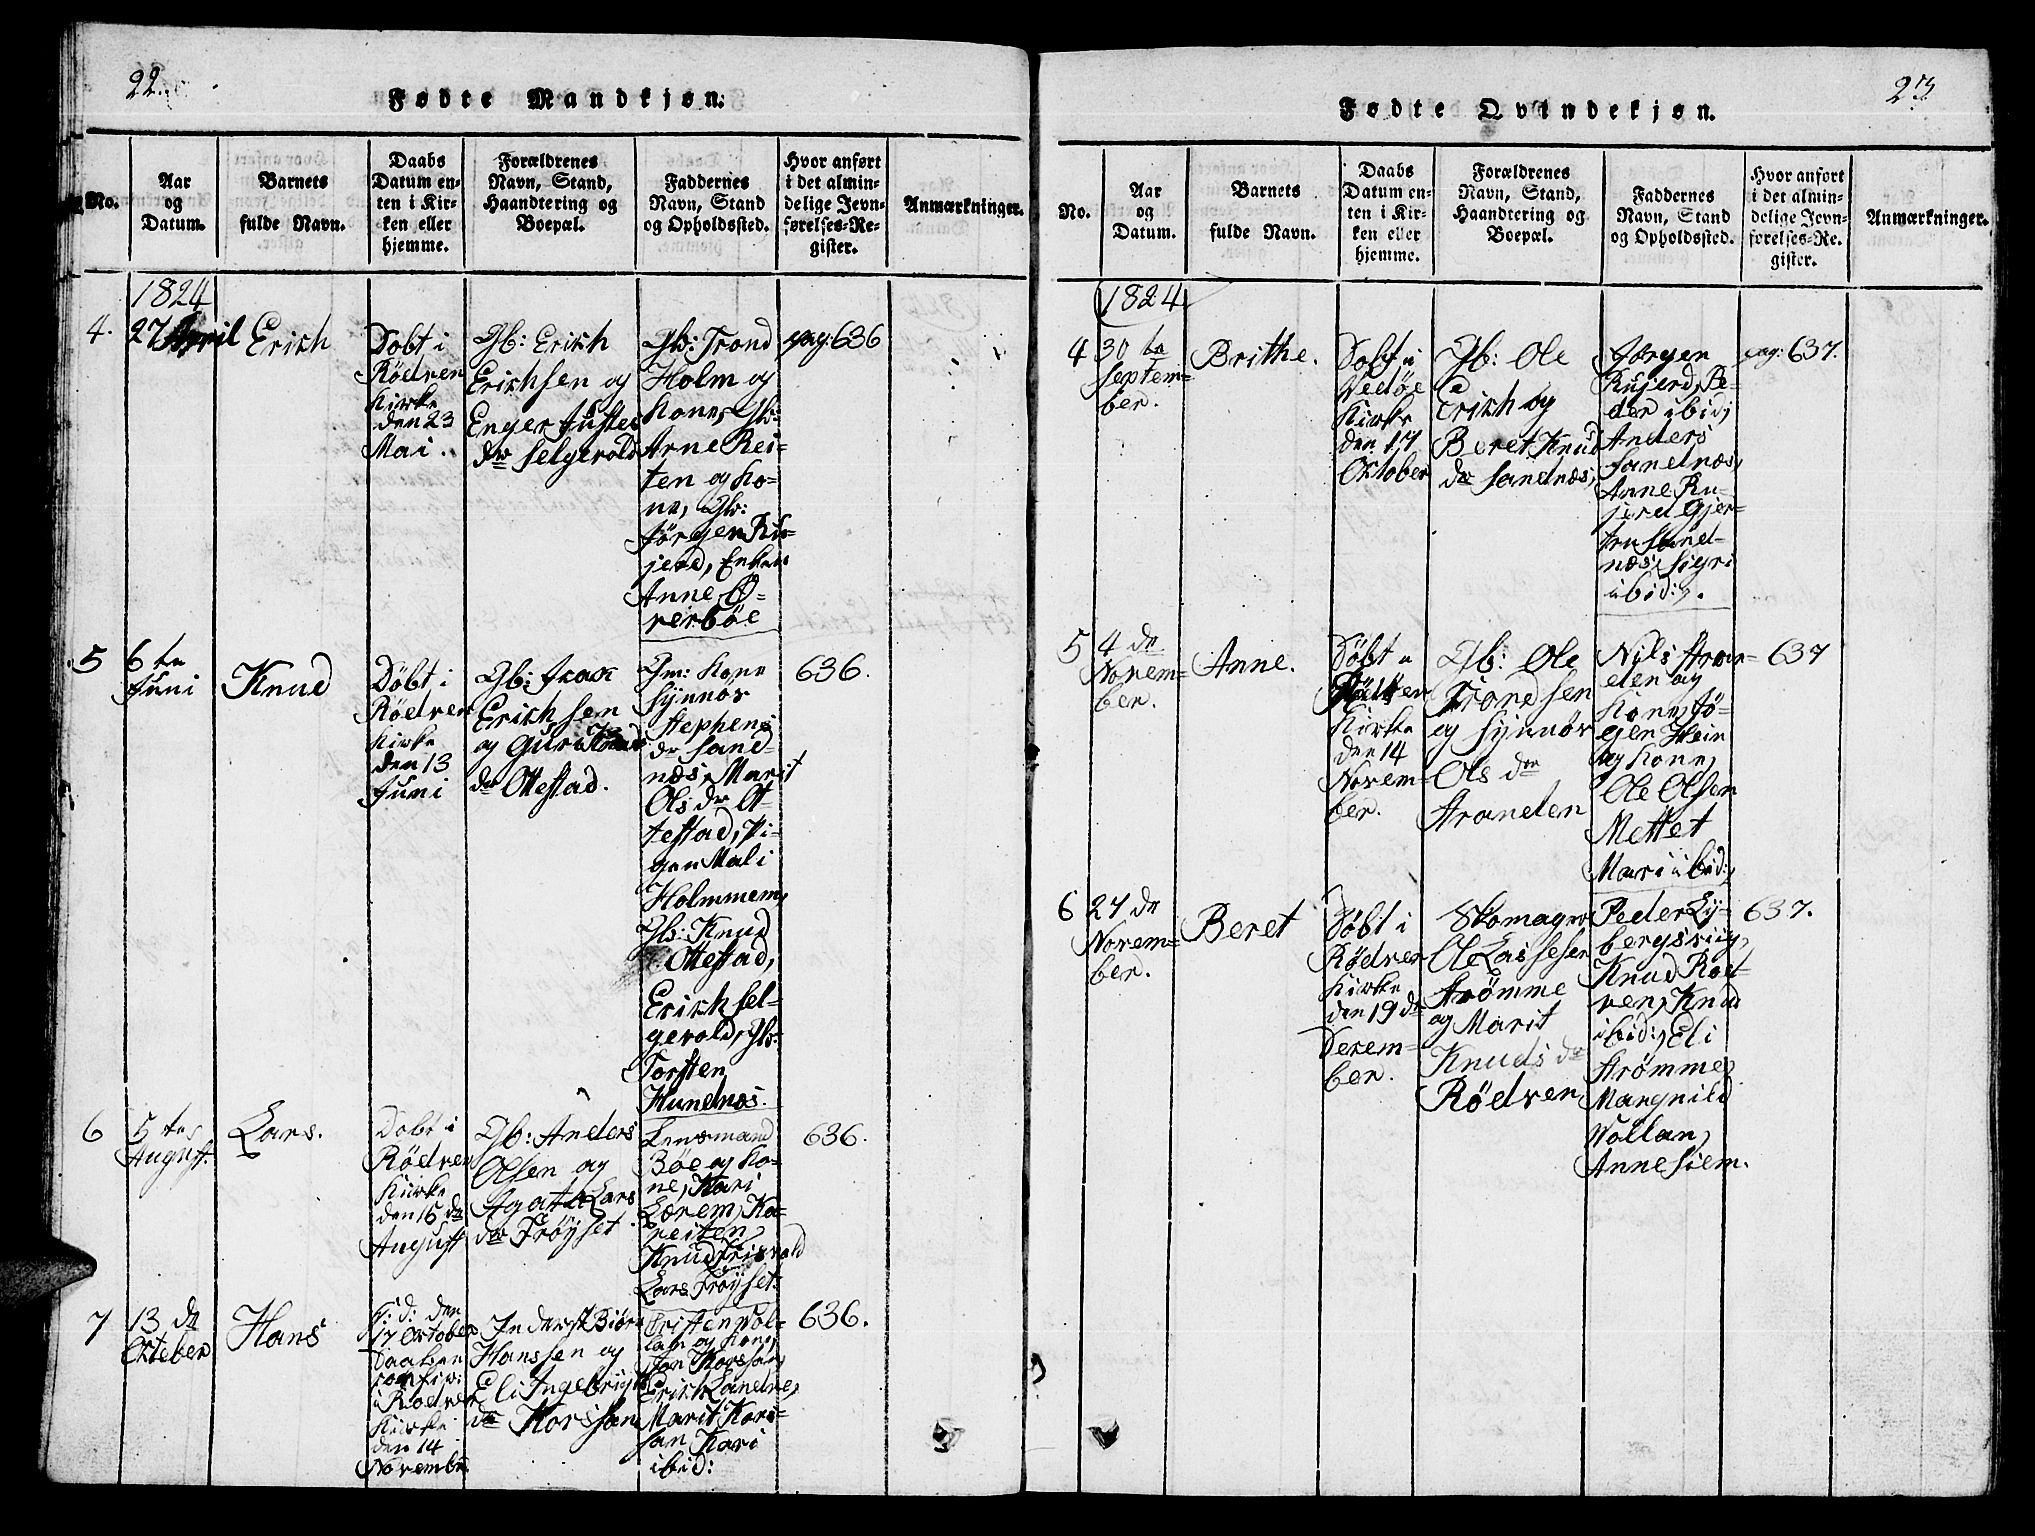 22.
Fødte Mandkjøn.
No.
Aar
og
Datum.
Barnets
fulde Navn.
Daabs
Datum en-
ten i Kir-
ken eller
hjemme.
Forældrenes
Navn, Stand,
Haandtering og
Boepæl.
Faddernes
Navn, Stand
og Opholdssted.
Hvor anført
i det almin-
delige Jevn-
førelses-Re-
gister.
Anmærkninger.
1824
4.
27 April
Erich
Døbt i
Rödven
Kirke
den 23
Mai.
Gb: Erich
Erichsen og
Enger Justes
dr Selgevold
Gb: Trond
Holm og
Kone, Gb:
Arne Rei-
ten og Ko-
ne, Gb:
Jörgen Ru-
jerd, Enken
Anne Ø-
verböe
pag: 636
5
6 te
Juni
Knud
Döbt i
Rödven
Kirke
den 13
Juni
Gb: Isac
Erichsen
og Guri
dr Ottestad.
Gm: Kone
Synnov
Stephens
dr Sand-
næs, Marit
Ols dr Ot-
testad, Pi-
gen Mali
Holmmem,
Gb: Knud
Ottestad,
Erich Sel-
gevold, Gb:
Torsten
Hundnæs.
636.
6
5 te
August.
Lars.
Döbt i
Rödven
Kirke
den 15 de
August
Gb: Anders
Olsen og
Agata Lars
dr Fröyset.
Lensmand
Böe og Ko-
ne, Kari
Lærem, Ka-
reiten,
Knud
Lars Fröyset.
636.
7
13 de
Oktober
Hans
H: d: den
17 Oktober
Daaben
confir:
i Rödven
Kirke
den 14
November
Inderst Biörn
Hanssen og
Eli Ingebrigts
dr Korssan
Cristen Vol-
lan og Kone,
Jon Korssan,
Erich Landre,
Marit Kors-
san Kari
ibid:
636.
23
Fødte Qvindekjøn.
No.
Aar
og
Datum.
Barnets
fulde Navn.
Daabs
Datum en-
ten i Kir-
ken eller
hjemme.
Forældrenes
Navn, Stand,
Haandtering og
Boepæl.
Faddernes
Navn, Stand
og Opholdssted.
Hvor anført
i det almin-
delige Jevn-
førelses-Re-
gister.
Anmærkninger.
1824
4
30 te
Septem-
ber.
Brithe.
Døbt i
Vedöe
Kirke
den 17
Oktober
Gb: Ole
Erich og
Beret Knud
dr Sandnæs,
Jørgen
Rujerd, Pe-
der ibid;
Anders
Sandnæs,
Anne Ru-
jerd Gjer-
tru Sand-
næs, Sigri
ibid:,.
pag: 637.
5
4 de
Novem-
ber.
Anne.
Döbt i
Rödven
Kirke
den 14
Novem-
ber.
Gb: Ole
Trondsen
og Synnöv
Ols dr
Stranden
Nils Stran-
den og
Kone, Jö-
gen Hein
og Kone,
Ole Olsen
Mettet
Mari ibid:,
637
6
27 de
Novem-
ber.
Beret
Döbt i
Rödven
Kirke
den 19 de
Decem-
ber.
Skomager
Ole Lassesen
Strömme
og Marit
Knuds dr
Rödven
Peder Ly-
bergsviig,
Knud Röd-
ven, Knud
ibid:, Eli
Strömme,
Margnild
Vollan,
Anne Siem.
637.